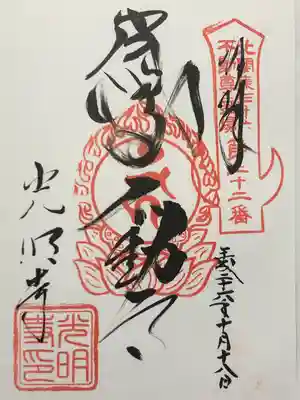 奉拝
北關東三十六
不動尊霊場第二十二番
平成二十六年十月十八日
不動尊
光明寺
光明
寺印